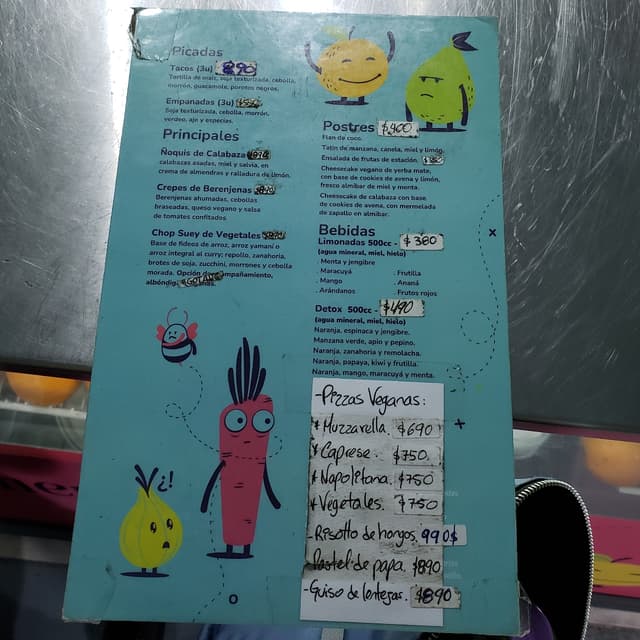 Picadas
Tacos (3u) 890
Tortilla de maíz, soja texturizada, cebolla,
morrón, guacamole, porotos negros.
Empanadas (3u)
Soja texturizada, cebolla, morrón,
verdeo, ajo y especias.
Principales
Ñoquis de Calabaza
calabazas asadas, miel y salvia, en
crema de almendras y ralladura de limón.
Crepes de Berenjenas
Berenjenas ahumadas, cebollas
braseadas, queso vegano y salsa
de tomates confitados.
Chop Suey de Vegetales
Base de fideos de arroz, arroz yamaní o
arroz integral al curry; repollo, zanahoria,
brotes de soja, zucchini, morrones y cebolla
morada. Opción de acompañamiento,
¿!
Postres $400
Flan de coco.
Tatin de manzana, canela, miel y limón.
Ensalada de frutas de estación.
Cheesecake vegano de yerba mate,
con base de cookies de avena y limón,
fresco almíbar de miel y menta.
Cheesecake de calabaza con base
de cookies de avena, con mermelada
de zapallo en almíbar.
Bebidas
Limonadas 500cc - $380
(agua mineral, miel, hielo)
. Menta y jengibre
. Maracuyá . Frutilla
. Mango . Ananá
. Arándanos . Frutos rojos
Detox 500cc - $490
(agua mineral, miel, hielo)
Naranja, espinaca y jengibre.
Manzana verde, apio y pepino.
Naranja, zanahoria y remolacha.
Naranja, papaya, kiwi y frutilla.
Naranja, mango, maracuyá y menta.
-Pizzas Veganas:
* Muzzarella. $690
* Caprese. $750
* Napolitana. $750
* Vegetales. $750
-Risotto de hongos. 990$
-Pastel de papa. $890
-Guiso de lentejas. $890